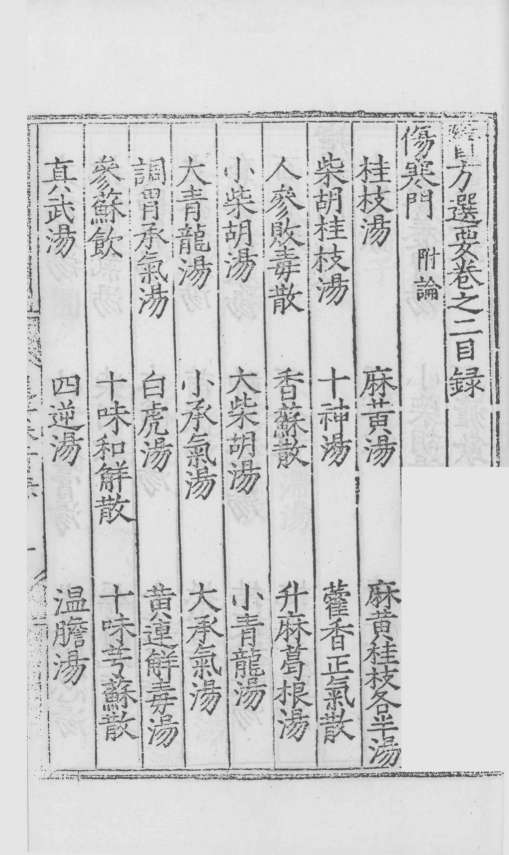 醫方選要卷之二目錄
傷寒門 附論
桂枝湯 麻黃湯 麻黃桂枝各半湯
柴胡桂枝湯 十神湯 藿香正氣散
人參敗毒散 香蘇散 升麻葛根湯
小柴胡湯 大柴胡湯 小青龍湯
大青龍湯 小承氣湯 大承氣湯
調胃承氣湯 白虎湯 黃連解毒湯
參蘇飲 十味和解散 十味芎蘇散
真武湯 四逆湯 温膽湯